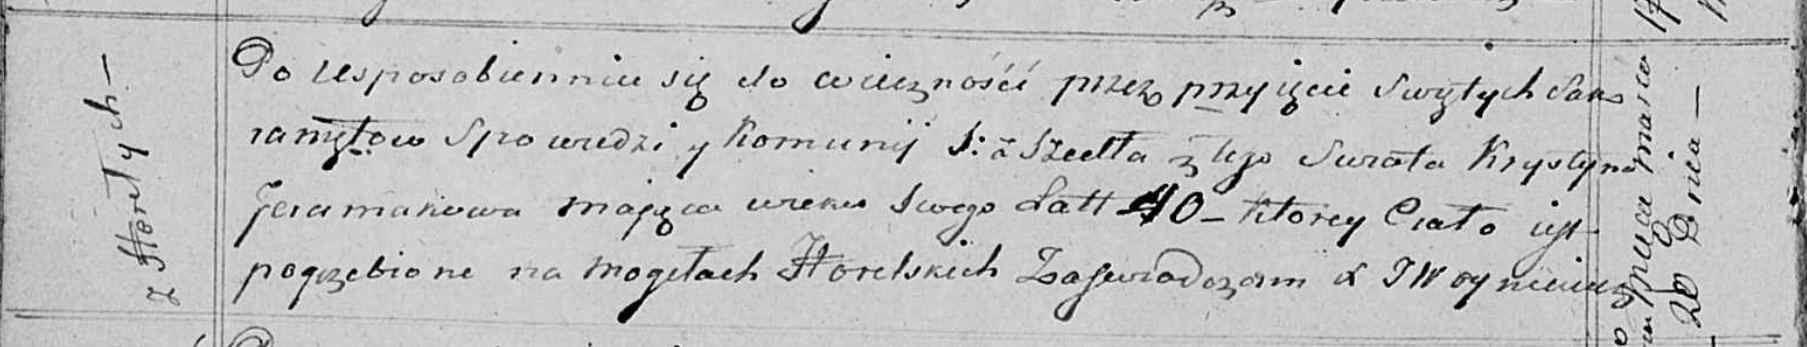 z Horełych —
Po usposobienniu się do wieczności przez przyięcie Swiętych Sak
ramętow Spowiedzi y Komunij S: zeszedła z tego Swiata Krystyna
Jeramakowa mająca wieku Swego Latt 40 – ktorey Ciało iest
pogrzebione na mogiłach Horelskich Zaswiadczam X J Woyniewicz
miesca marca 17
20 Dnia —